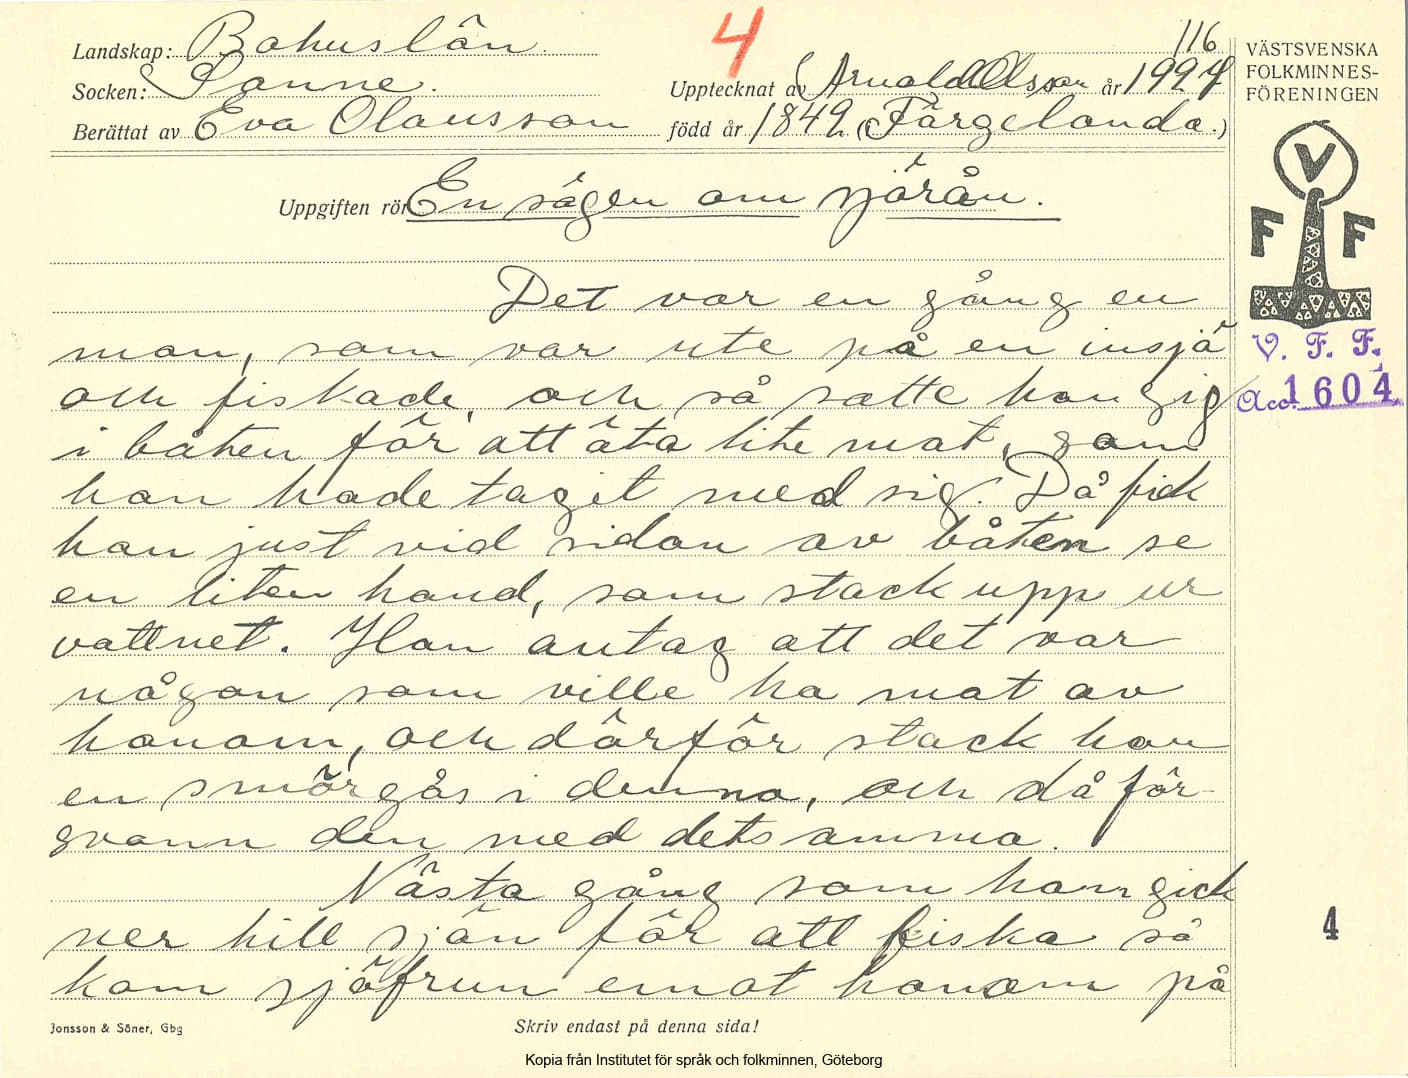 4
116
Landskap: Bohuslän.
Socken: Sanne.
Upptecknat av Arnold Olsson år 1927
Berättat av Eva Olausson född år 1849. (i Färgelanda.)
VÄSTSVENSKA
FOLKMINNES-
FÖRENINGEN
V
F F
V. F. F.
Acc. 1604
Uppgiften rör En sägen om sjörån.
Det var en gång en
man, som var ute på en insjö
och fiskade, och så satte han sig
i båten för att äta lite mat, som
han hade tagit med sig. Då fick
han just vid sidan av båten se
en liten hand, som stack upp ur
vattnet. Han antag att det var
någon som ville ha mat av
honom, och därför stack han
en smörgås i denna, och då för-
svann den med detsamma.
Nästa gång som han gick
ner till sjön för att fiska så
kom sjöfrun emot honom på
4
Jonsson & Söner, Gbg
Skriv endast på denna sida!
Kopia från Institutet för språk och folkminnen, Göteborg